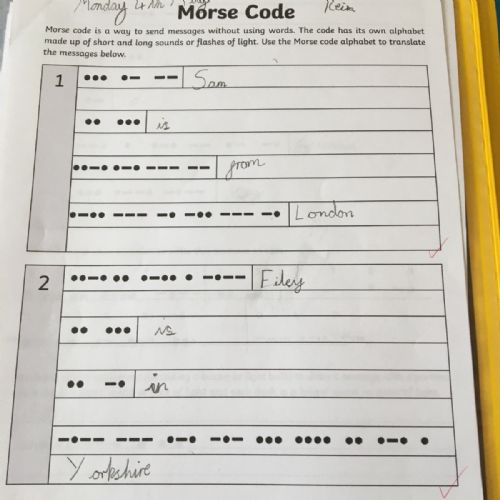 Monday 4th
Morse Code
Morse code is a way to send messages without using words. The code has its own alphabet
made up of short and long sounds or flashes of light. Use the Morse code alphabet to translate
the messages below.
1 ••• •– –– Sam
•• ••• is
••–• •–• ––– –– from
•–•• ––– –• –•• ––– –• London
2 ••–• •• •–•• • –•–– Filey
•• ••• is
•• –• in
–•–– ––– •–• –•– ••• •••• •• •–• •
Yorkshire